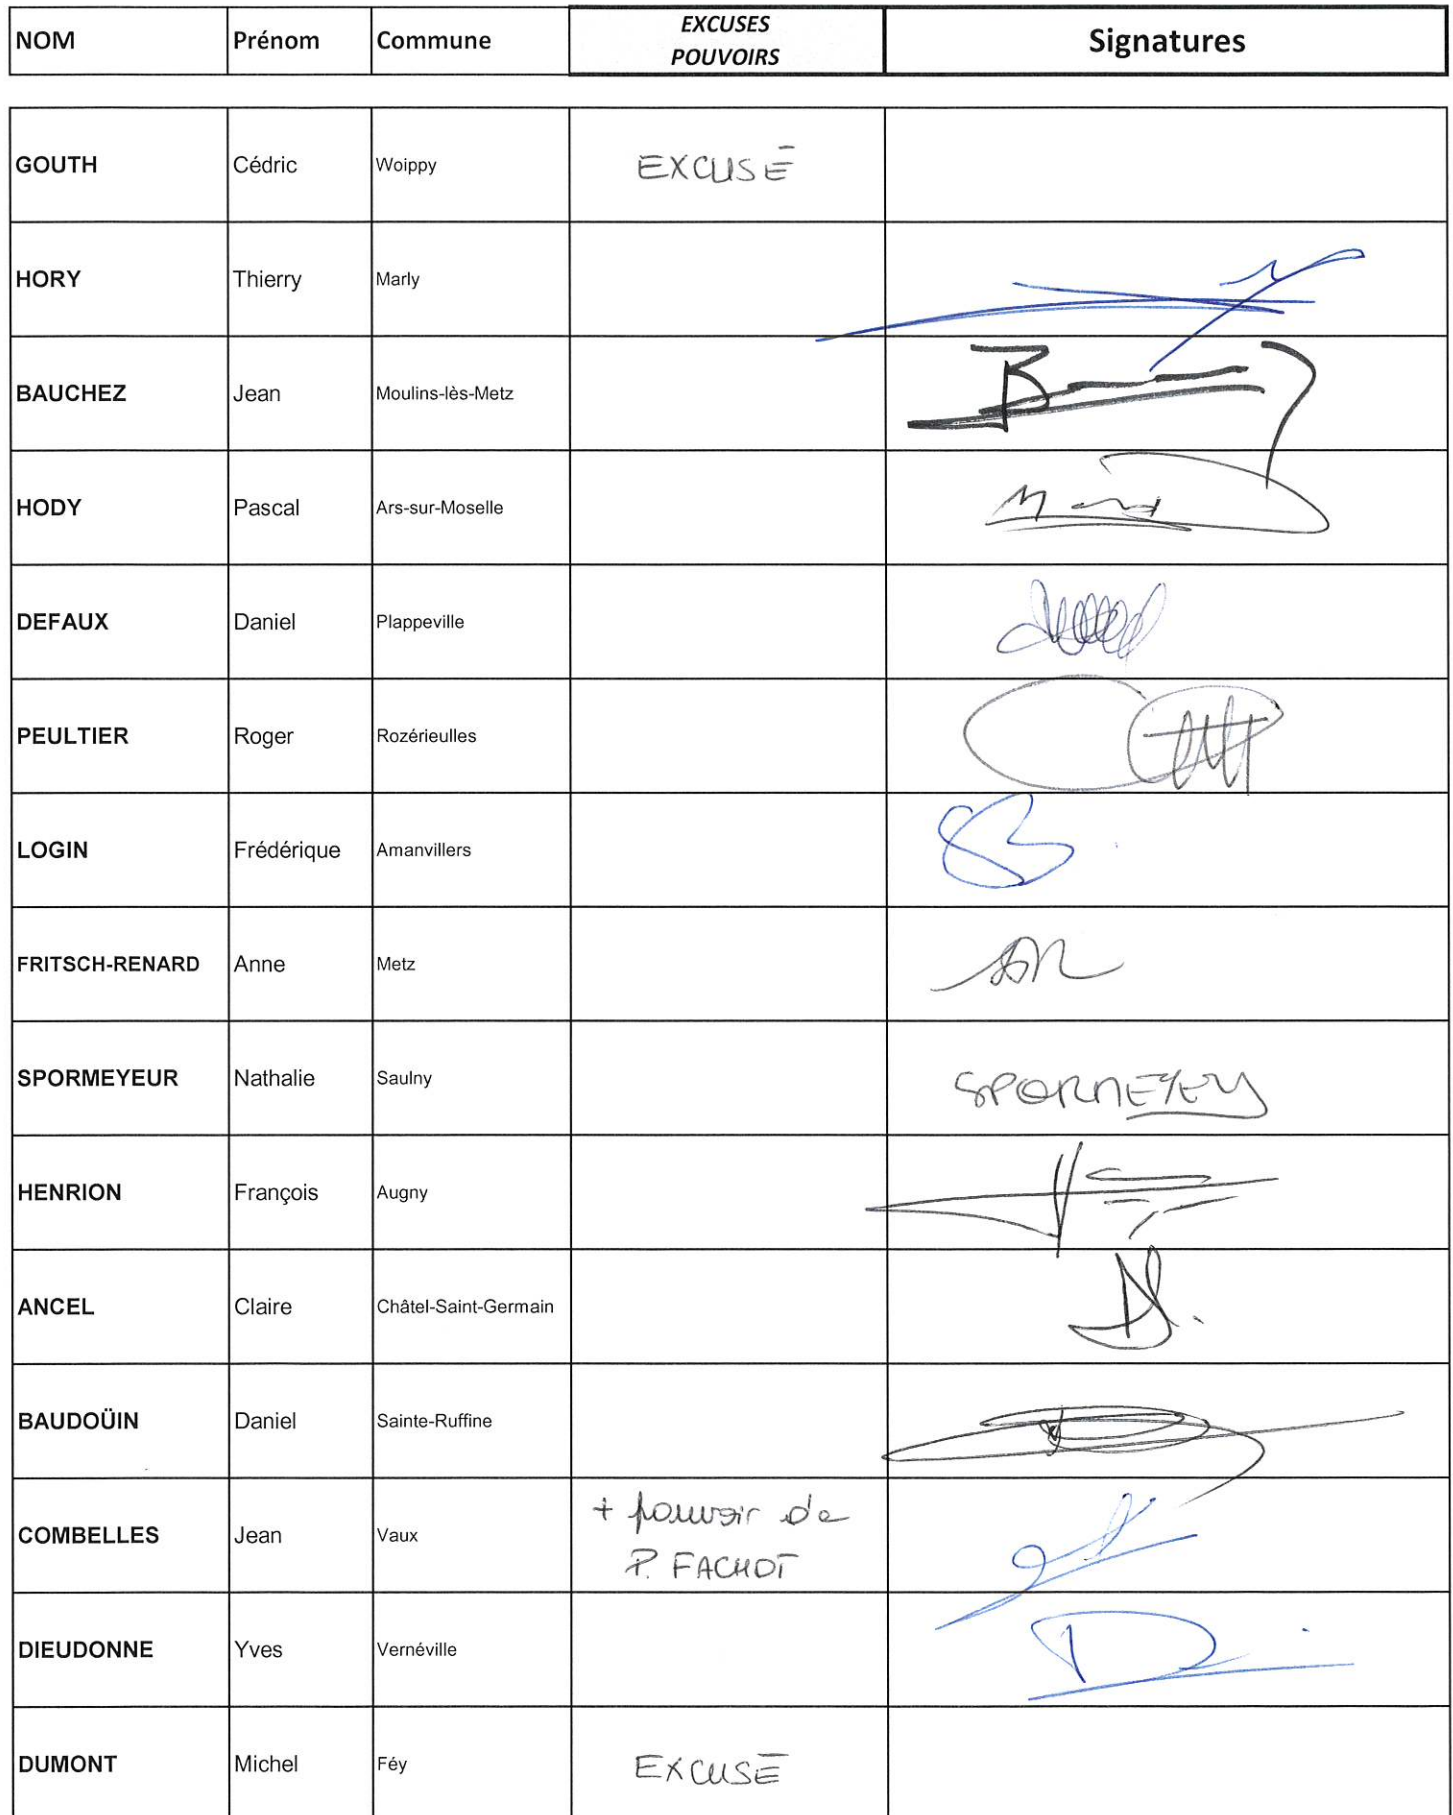 NOM Prénom Commune EXCUSES POUVOIRS Signatures
GOUTH Cédric Woippy EXCUSÉ
HORY Thierry Marly
BAUCHEZ Jean Moulins-lès-Metz
HODY Pascal Ars-sur-Moselle
DEFAUX Daniel Plappeville
PEULTIER Roger Rozérieulles
LOGIN Frédérique Amanvillers
FRITSCH-RENARD Anne Metz
SPORMEYEUR Nathalie Saulny
HENRION François Augny
ANCEL Claire Châtel-Saint-Germain
BAUDOÜIN Daniel Sainte-Ruffine
COMBELLES Jean Vaux + pouvoir de P. FACHOT
DIEUDONNE Yves Vernéville
DUMONT Michel Féy EXCUSÉ